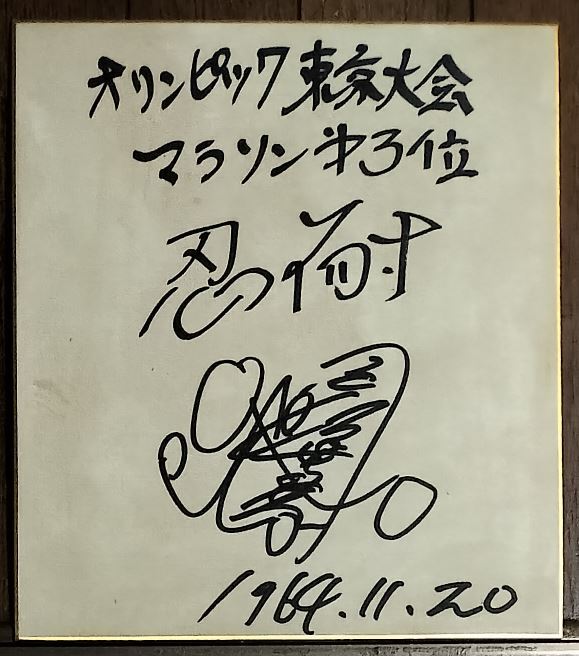 オリンピック東京大会
マラソン㐧3位
忍耐
1964.11.20